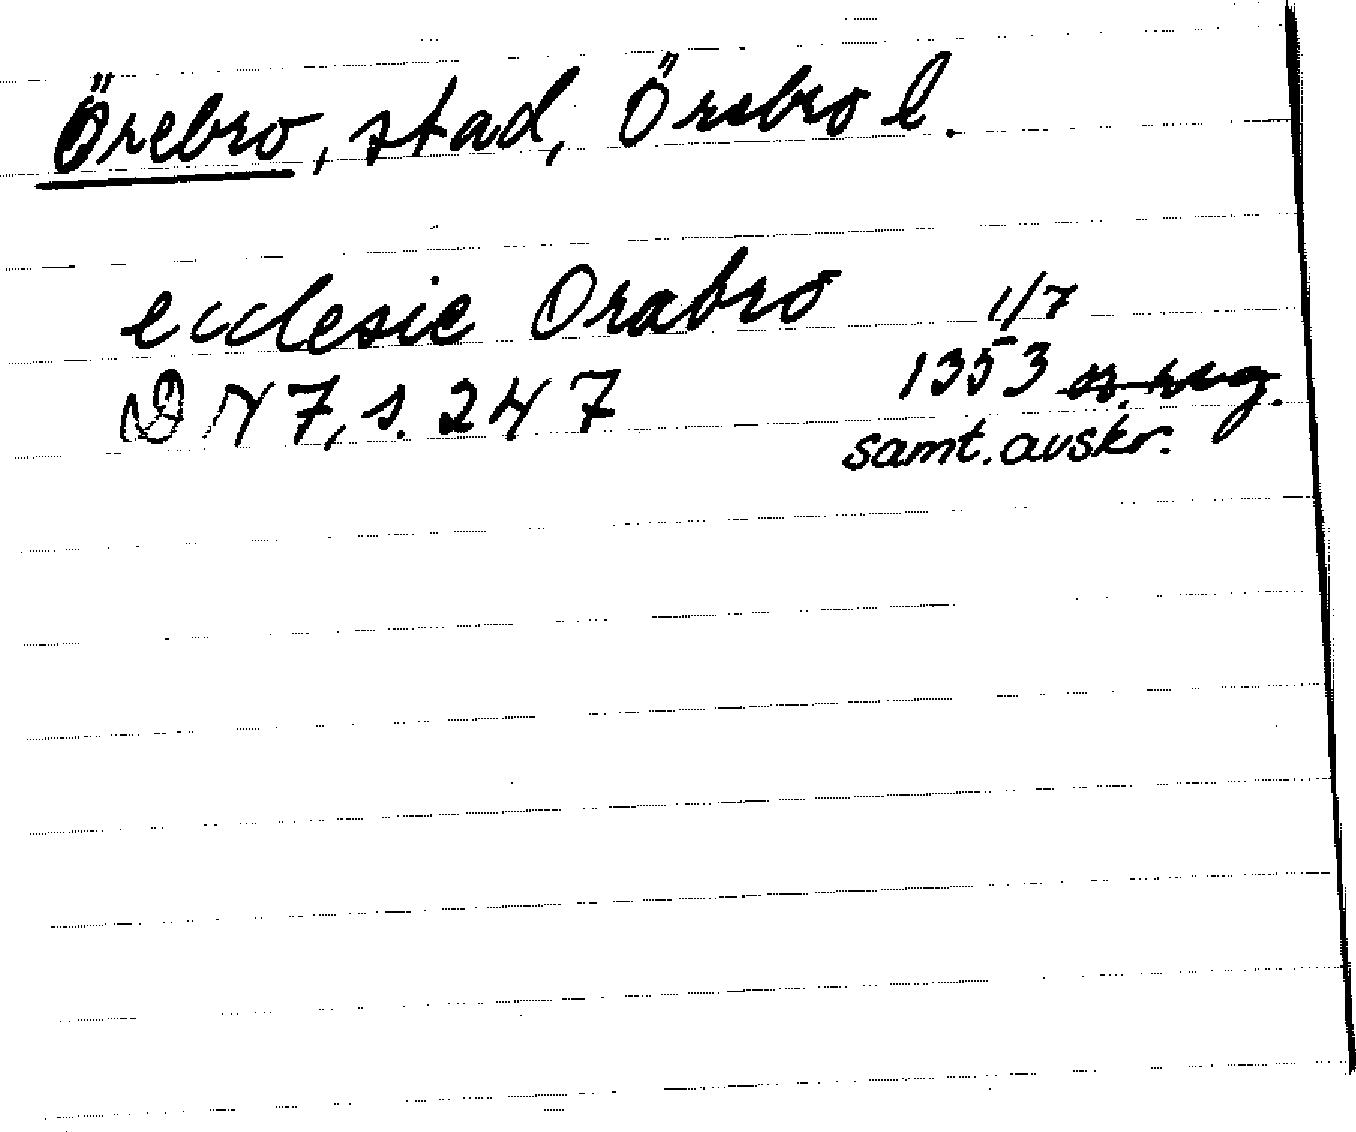 Örebro, stad, Örebro l.
ecclesie Orabro 1/7
DN 7, s. 247 1353 or. reg.
samt. avskr.